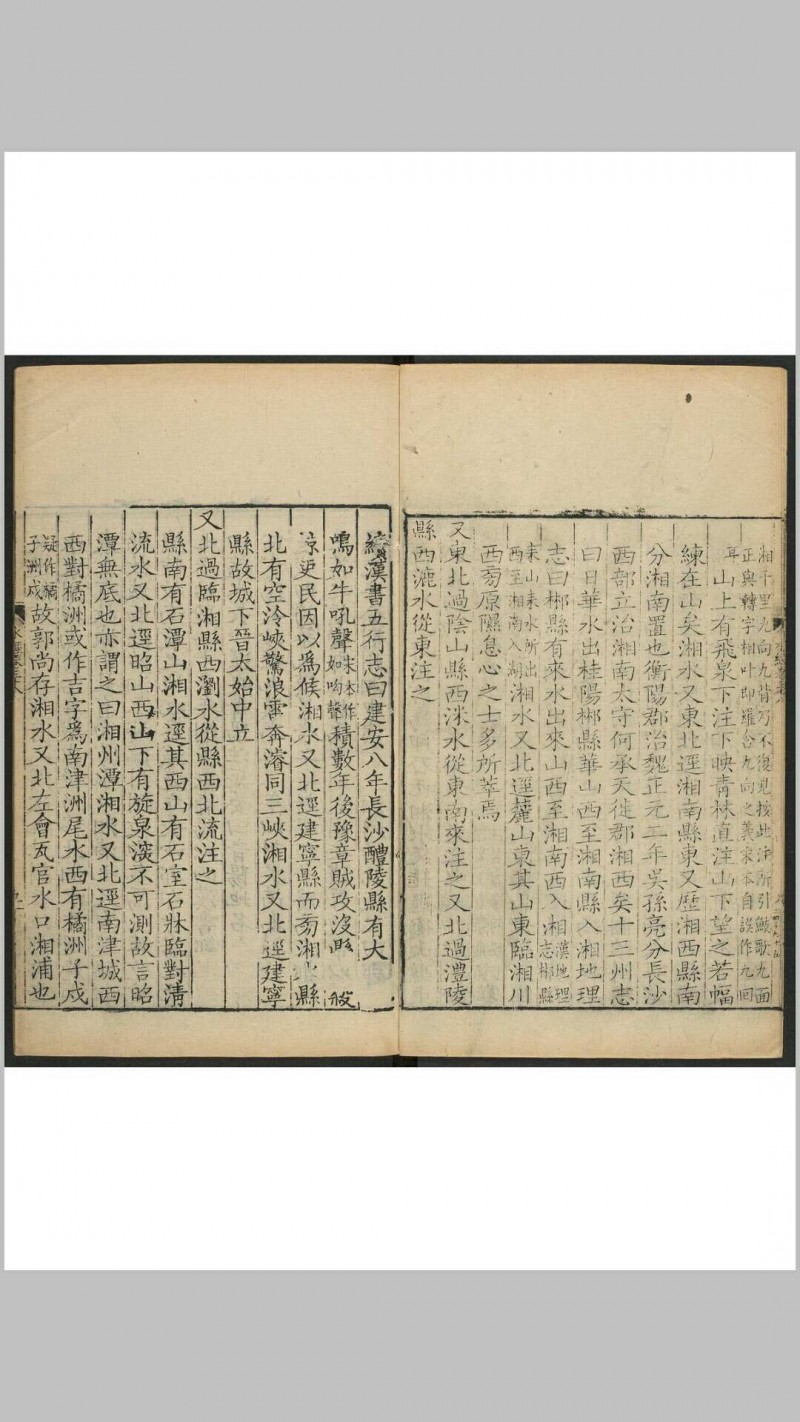 湘千里九向九背乃不復見按此注所引歌九面
正與轉字相叶即羅含九向之義宋本自誤作九回
耳
山上有飛泉下注下映青林直注山下望之若幅
練在山矣湘水又東北逕湘南縣東又歷湘西縣南
分湘南置也衡陽郡治魏正元二年吳孫亮分長沙
西部立治湘南太守何承天徙郡湘西矣十三州志
曰日華水出桂陽郴縣華山西至湘南縣入湘地理
志曰郴縣有來水出來山西至湘南西入湘漢地理志郴縣
耒山耒水所出西至湘南入湖湘水又北逕麓山東其山東臨湘川
西旁原隰息心之士多所萃焉
又東北過陰山縣西洣水從東南來注之又北過澧陵
縣西漉水從東注之
續漢書五行志曰建安八年長沙醴陵縣有大
鳴如牛吼聲宋本作如呴聲積數年後豫章賊攻沒
吏民因以爲候湘水又北逕建寧縣而旁湘縣
北有空泠峽驚浪雷奔濬同三峽湘水又北逕建寧
縣故城下晉太始中立
又北過臨湘縣西瀏水從縣西北流注之
縣南有石潭山湘水逕其西山有石室石牀臨對清
流水又北逕昭山西山下有旋泉深不可測故言昭
潭無底也亦謂之曰湘州潭湘水又北逕南津城西
西對橘洲或作吉字爲南津洲尾水西有橘洲子戍
疑作橘子洲戍故郭尚存湘水又北左會瓦官水口湘浦也